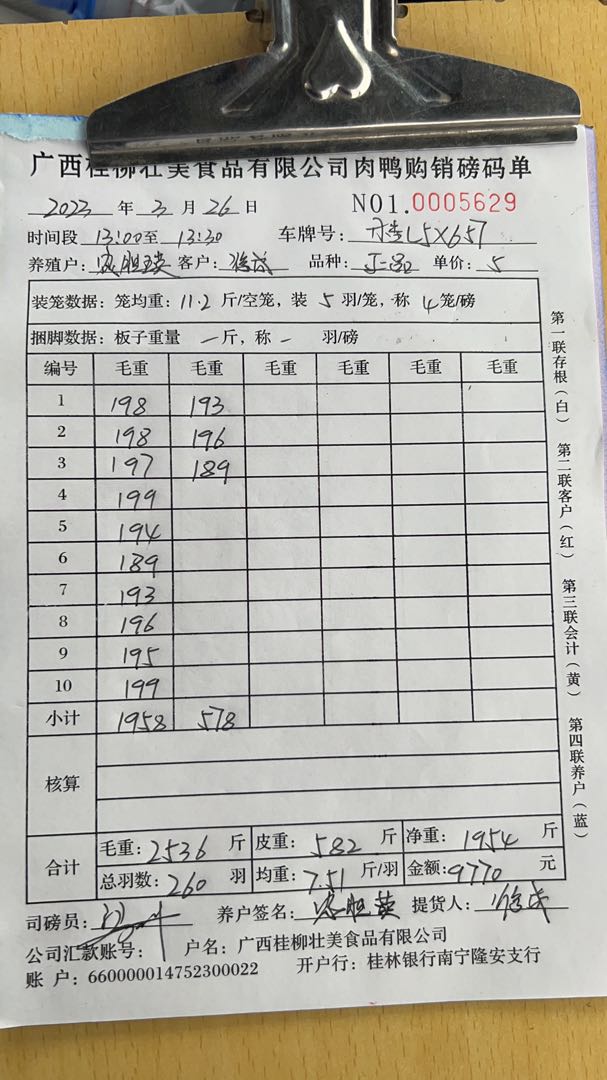 广西桂柳壮美食品有限公司肉鸭购销磅码单
2023 年 3 月 26 日 NO1.0005629
时间段 13:00至 13:30 车牌号: L5X657
养殖户: 客户: 品种: 单价: 5
装笼数据: 笼均重: 11.2 斤/空笼, 装 5 羽/笼, 称 4 笼/磅
捆脚数据: 板子重量 — 斤, 称 — 羽/磅
编号 毛重 毛重 毛重 毛重 毛重 毛重
1 198 193
2 198 196
3 197 189
4 199
5 194
6 189
7 193
8 196
9 195
10 199
小计 1958 578
核算
合计 毛重: 2536 斤 皮重: 582 斤 净重: 1954 斤
总羽数: 260 羽 均重: 7.51 斤/羽 金额: 9770 元
司磅员: 养户签名: 提货人:
公司汇款账号: 户名: 广西桂柳壮美食品有限公司
账 户: 660000014752300022 开户行: 桂林银行南宁隆安支行
第一联存根(白) 第二联客户(红) 第三联会计(黄) 第四联养户(蓝)